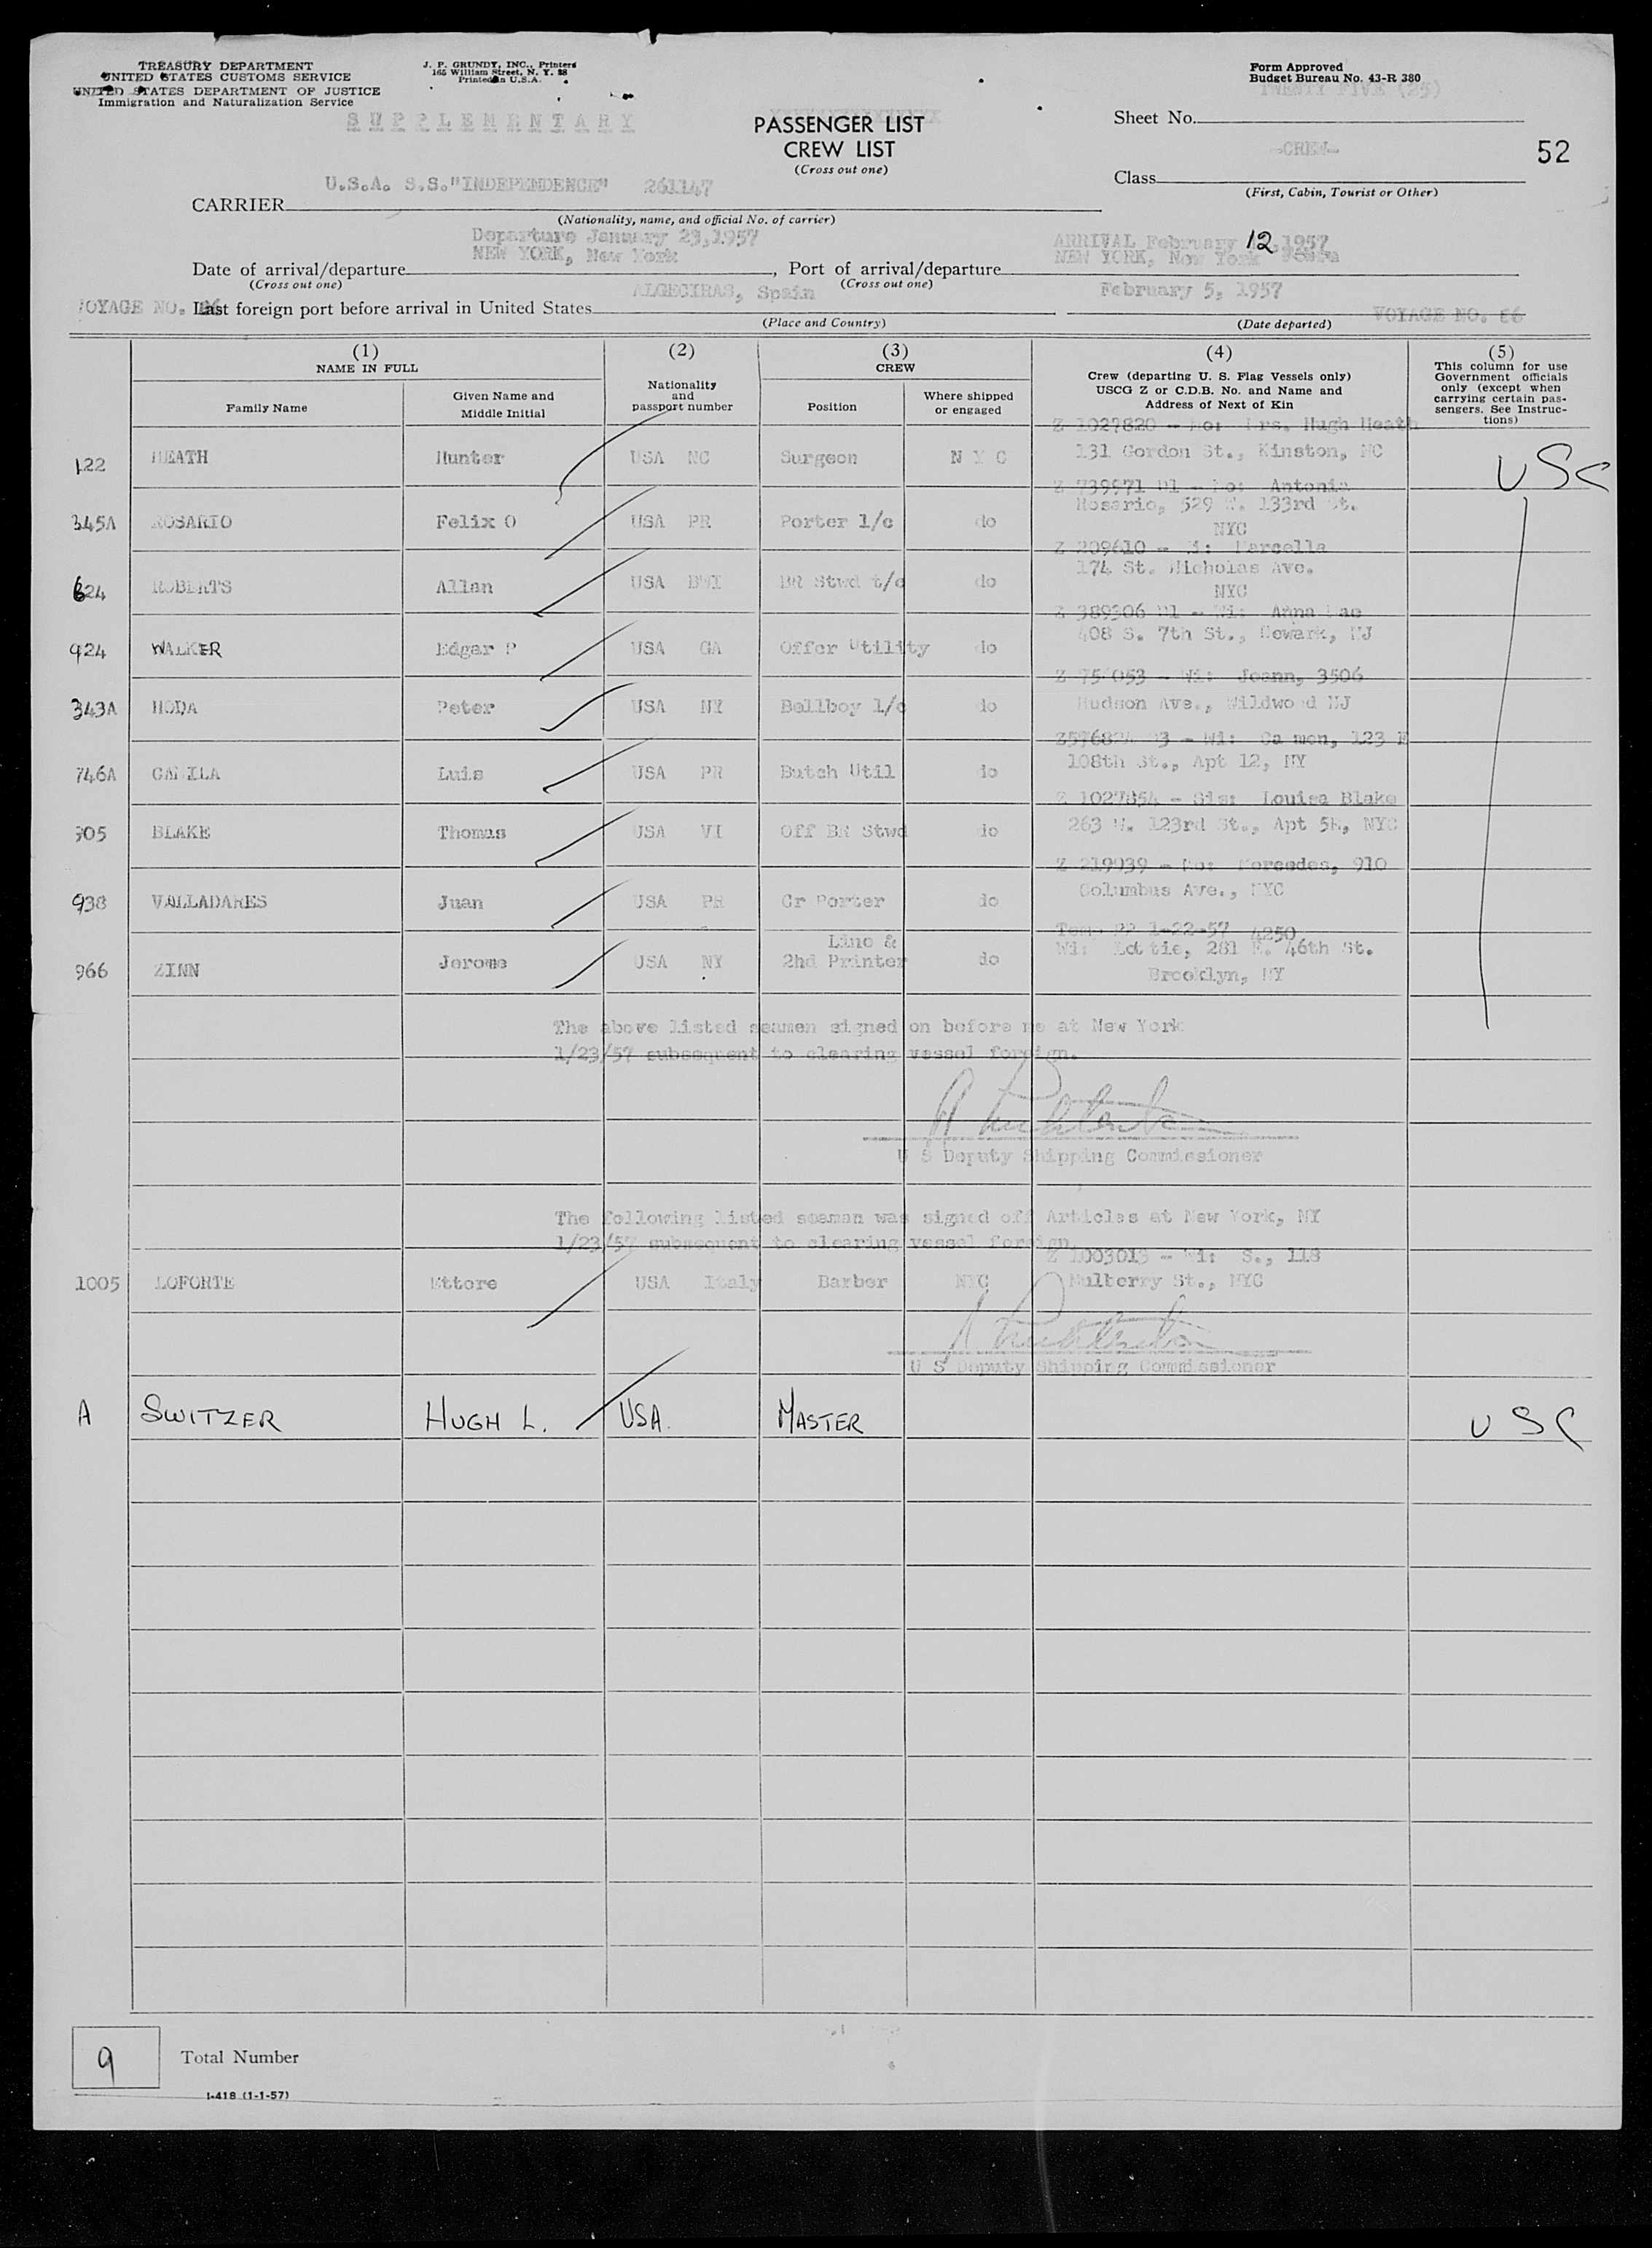 TREASURY DEPARTMENT
UNITED STATES CUSTOMS SERVICE
UNITED STATES DEPARTMENT OF JUSTICE
Immigration and Naturalization Service
J. P. GRUNDY, INC., Printers
165 William Street, N. Y. 38
Printed in U.S.A.
Form Approved
Budget Bureau No. 43-R 380
TWENTY FIVE (25)
SUPPLEMENTARY
PASSENGER LIST
CREW LIST
(Cross out one)
Sheet No.
-CREW-
52
Class
(First, Cabin, Tourist or Other)
U.S.A. S.S."INDEPENDENCE" 261147
CARRIER
(Nationality, name, and official No. of carrier)
Departure January 23,1957 ARRIVAL February 12,1957
NEW YORK, New York NEW YORK, New York
Date of arrival/departure, Port of arrival/departure
(Cross out one) (Cross out one)
ALGECIRAS, Spain February 5, 1957
VOYAGE NO. Last foreign port before arrival in United States VOYAGE NO. 66
(Place and Country) (Date departed)
(1) NAME IN FULL
Family Name
Given Name and Middle Initial
(2) Nationality and passport number
(3) CREW
Position
Where shipped or engaged
(4) Crew (departing U. S. Flag Vessels only) USCG Z or C.D.B. No. and Name and Address of Next of Kin
(5) This column for use Government officials only (except when carrying certain passengers. See Instructions)
Z 1027820 - Mo: Mrs. Hugh Heath
122 HEATH Hunter USA NC Surgeon N Y C 131 Gordon St., Kinston, NC USC
Z 739971 D1 - Mo: Antonia
345A ROSARIO Felix O USA PR Porter 1/c do Rosario, 529 W. 133rd St.
NYC
Z 209610 - Wi: Marcella
624 ROBERTS Allan USA BWI BR Stwd t/c do 174 St. Nicholas Ave.
NYC
Z 389306 D1 - Wi: Anna Mae
924 WALKER Edgar P USA GA Offcr Utility do 408 S. 7th St., Newark, NJ
Wi: Joann, 3506
343A NODA Peter USA NY Bellboy 1/c do Hudson Ave., Wildwood NJ
- Wi: Carmen, 123 E
746A Luis USA PR Butch Util do 108th St., Apt 12, NY
Z 1027854 - Sis: Louisa Blake
905 BLAKE Thomas USA VI Off BR Stwd do 263 W. 123rd St., Apt 5E, NYC
Z 219939 - Mo: Mercedes, 910
938 VALLADARES Juan USA PR Cr Porter do Columbus Ave., NYC
Temp PP 1-22-57 4250
966 ZINN Jerome USA NY Lino & 2nd Printer do Wi: Lottie, 281 E. 46th St.
Brooklyn, NY
The above listed seamen signed on before me at New York
1/23/57 subsequent to clearing vessel foreign.
U S Deputy Shipping Commissioner
The following listed seaman was signed off Articles at New York, NY
1/23/57 subsequent to clearing vessel foreign
Z 1003013 - Wi: S., 118
1005 LOFORTE Ettore USA Italy Barber NYC Mulberry St., NYC
U S Deputy Shipping Commissioner
A SWITZER HUGH L. USA. MASTER USC
9 Total Number
I-418 (1-1-57)